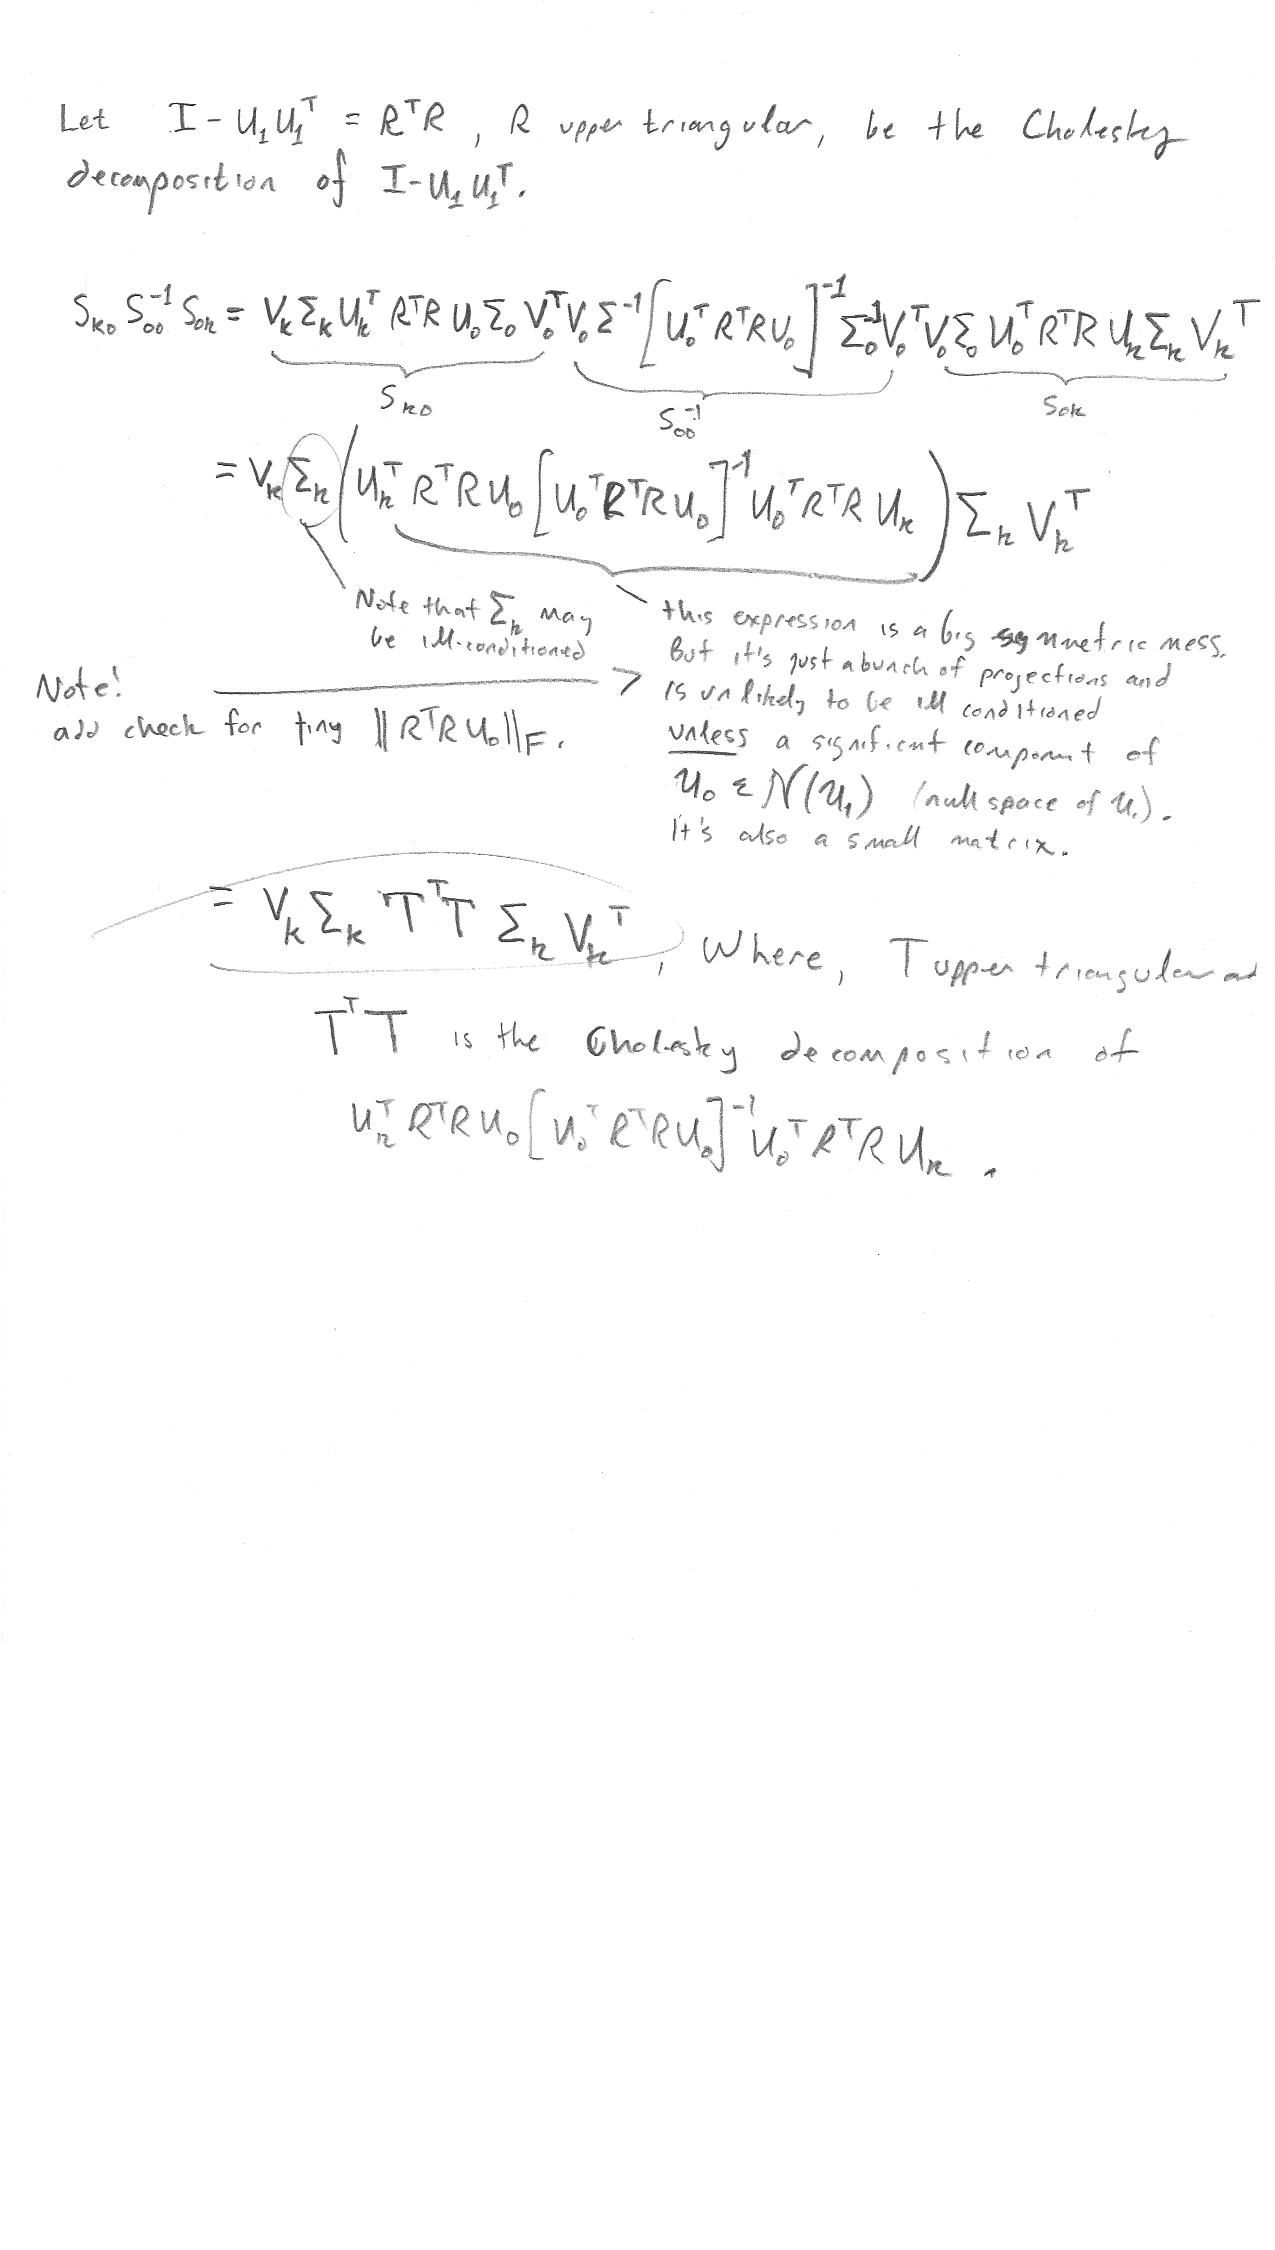 Let I - U₁U₁ᵀ = RᵀR , R upper triangular, be the Cholesky
decomposition of I-U₁U₁ᵀ.
Sₖ₀ S₀₀⁻¹ S₀ₖ = Vₖ Σₖ Uₖᵀ RᵀR U₀ Σ₀ V₀ᵀ V₀ Σ⁻¹ [U₀ᵀ RᵀR U₀]⁻¹ Σ₀⁻¹ V₀ᵀ V₀ Σ₀ U₀ᵀ RᵀR Uₖ Σₖ Vₖᵀ
Sₖ₀ S₀₀⁻¹ S₀ₖ
= Vₖ Σₖ (Uₖᵀ RᵀR U₀ [U₀ᵀ RᵀR U₀]⁻¹ U₀ᵀ RᵀR Uₖ) Σₖ Vₖᵀ
Note that Σₖ may
be ill-conditioned
this expression is a big symmetric mess.
But it's just a bunch of projections and
is unlikely to be ill conditioned
unless a significant component of
U₀ ε N(U₁) (null space of U₁).
It's also a small matrix.
Note!
add check for tiny ‖RᵀR U₀‖F.
= Vₖ Σₖ TᵀT Σₖ Vₖᵀ , Where, T upper triangular and
TᵀT is the Cholesky decomposition of
Uₖᵀ RᵀR U₀ [U₀ᵀ RᵀR U₀]⁻¹ U₀ᵀ RᵀR Uₖ .